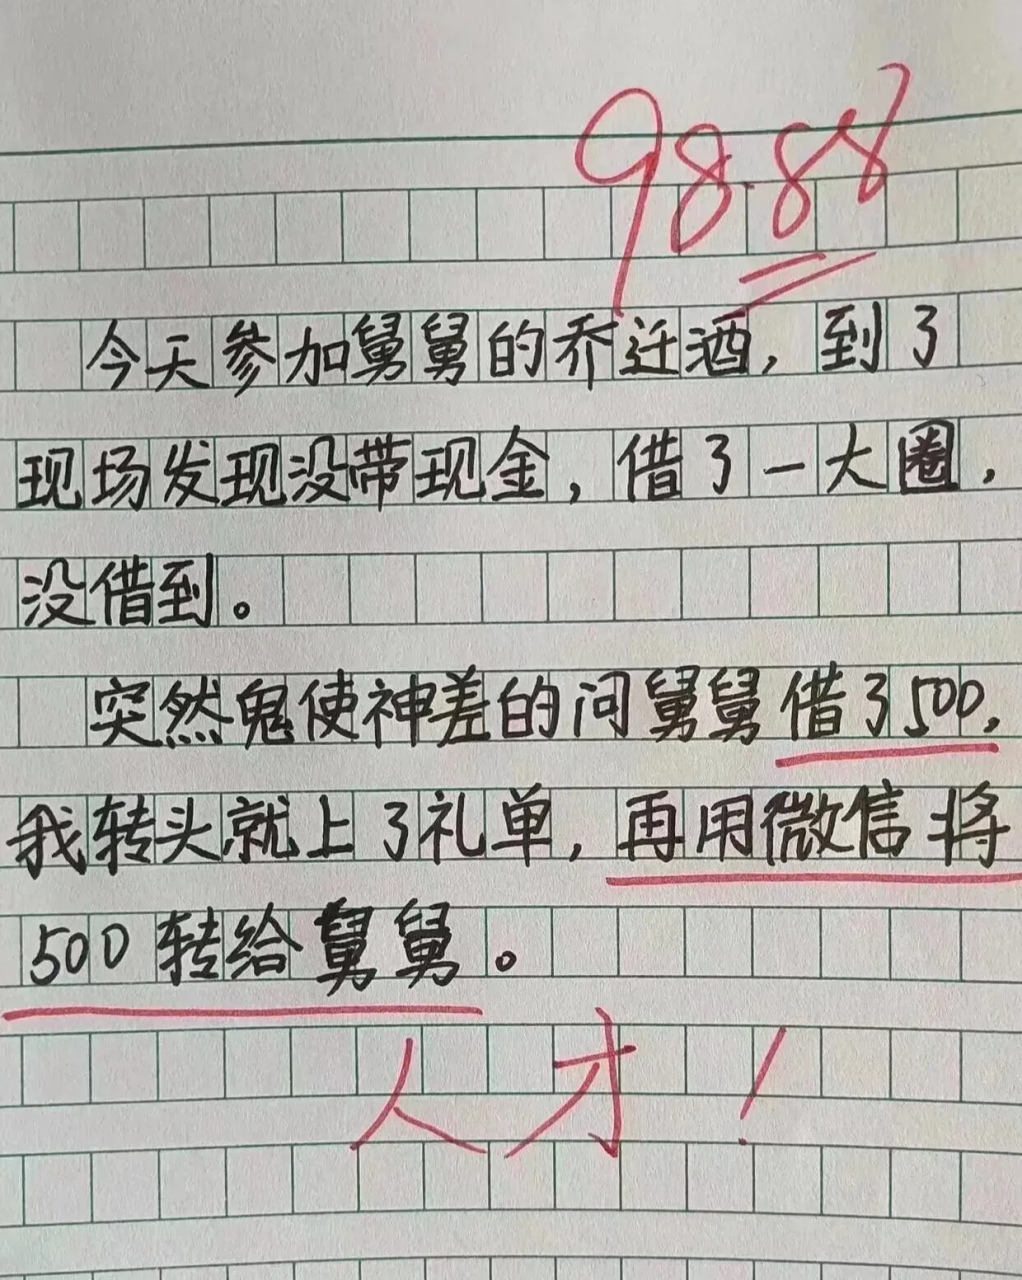 98.88
今天参加舅舅的乔迁酒，到了
现场发现没带现金，借了一大圈，
没借到。
突然鬼使神差的问舅舅借了500，
我转头就上了礼单，再用微信将
500转给舅舅。
人才！